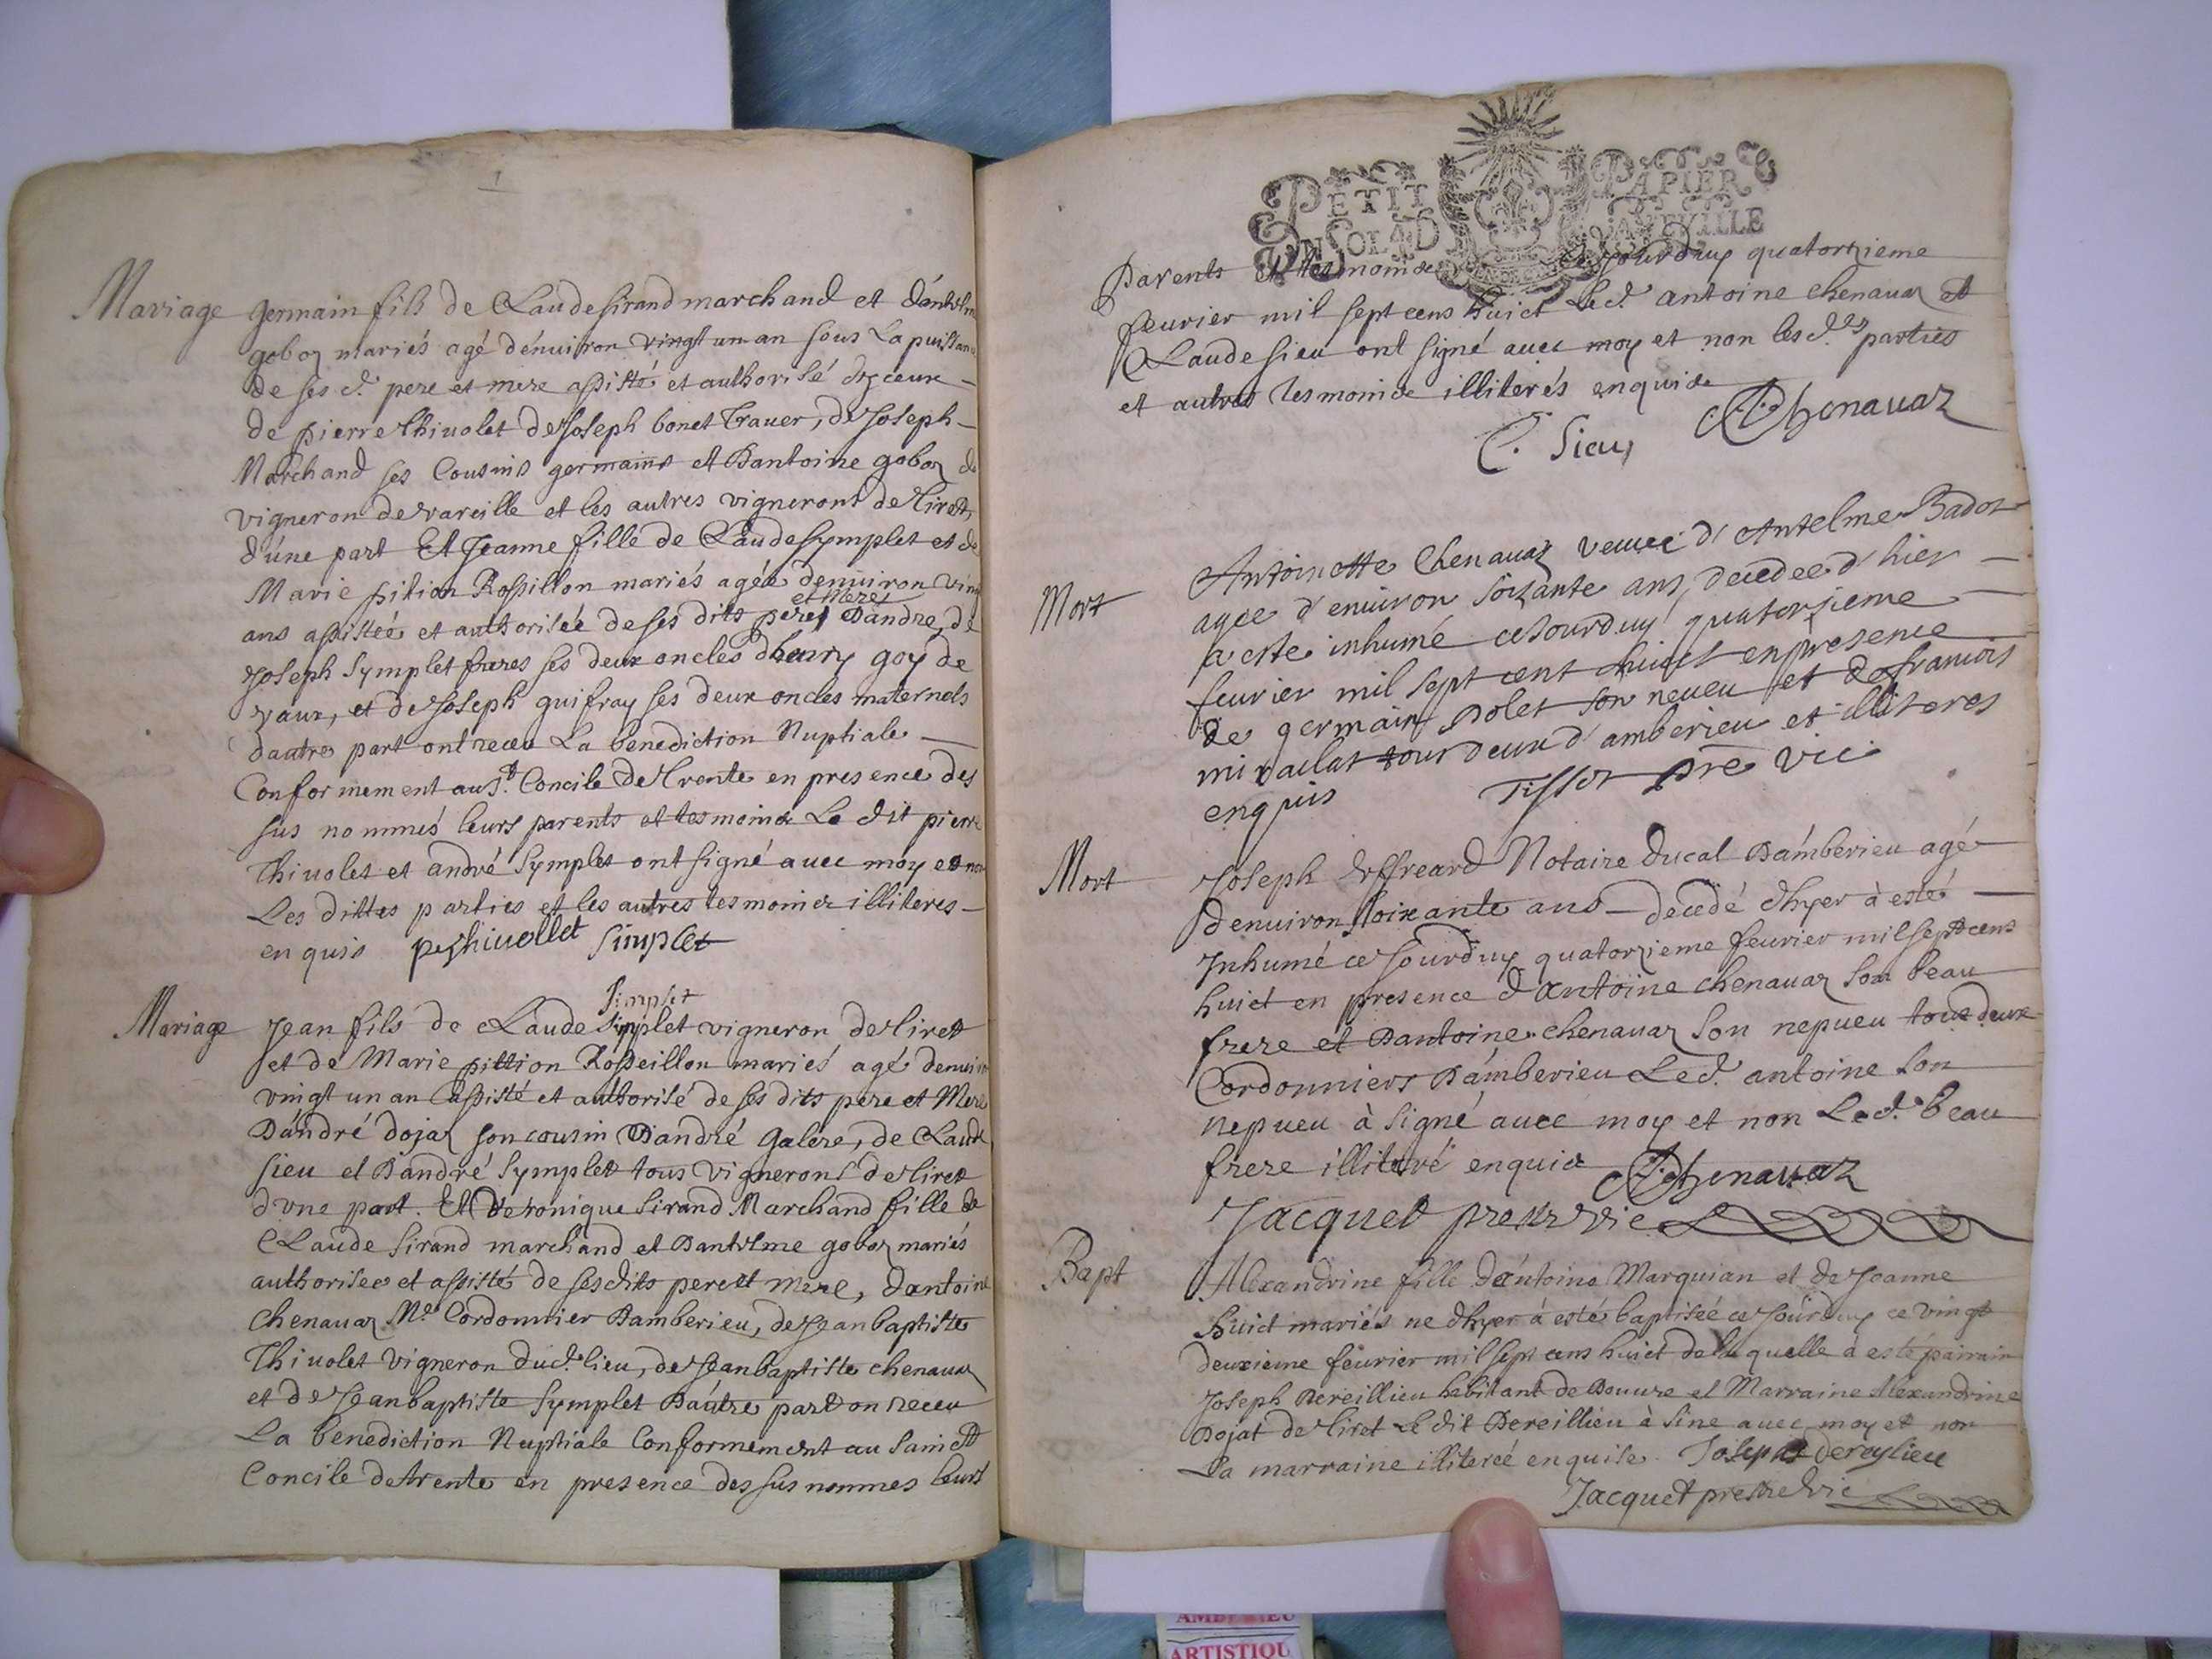 Mariage
germain fils de Claude sirand marchand et d'antelme
goboz mariés agé d'enuiron vingt un an sous La puissance
de ses d. pere et mere assisté et authorisé d'yceux
de pierre thiuolet de Joseph bonet trauer, de Joseph
Marchand ses Cousins germains et D'antoine goboz
vigneron de vareille et les autres vignerons de tiret,
d'une part Et Jeanne fille de Claude Symplet et de
Marie pition Rossillon mariés agée denuiron vingt
ans assistée et authorisée de ses dits pere et mere D'andre, de
Joseph Symplet freres ses deux oncles d'henry goy de
vaux, et de Joseph guifray ses deux oncles maternels
dautre part ont receu La benediction Nuptiale
Conformement au St. Concile de Trente en presence des
sus nommés leurs parents et tesmoins Le dit pierre
Thiuolet et andré Symplet ont signé auec moy et non
Les dittes parties et les autres tesmoins illiteres
enquis pe thiuollet Simplet
Mariage
Simplet
Jean fils de Claude Simplet vigneron de tiret
et de Marie pittion Rosseillon mariés agé denuiron
vingt un an assisté et authorisé de ses dits pere et Mere
D'andré dojaz son cousin D'andré Galere, de Claude
sieu et D'andré Symplet tous vignerons de tiret
d'vne part. Et Veronique Sirand Marchand fille de
Claude Sirand marchand et Dantelme goboz mariés
authorisée et assisté de ses dits pere et mere, d'antoine
Chenauaz Me. Cordonnier D'amberieu, de Jean baptiste
Thiuolet vigneron dud. lieu, de Jean baptiste chenauaz
et de Jean baptiste Symplet D'autre part on receu
La benediction Nuptiale Conformement au Sainct
Concile de trente en presence des sus nommes leurs
PETIT PAPIER
UN SOL 4 D LA FEVILLE
Parents et tesmoins ce Jourduy quatorzieme
feurier mil sept cens huict Led. antoine chenauaz et
Claude sieu ont signé auec moy et non les d.es parties
et autres tesmoins illiterés enquis
C. Sieu AChenauaz
Mort
Antoinette Chenauaz veuue d'Antelme Badoz
agee d'enuiron soixante ans, decedee d'hier
a este inhumé ce Jourduy quatorzieme
feurier mil sept cent huict en presence
de germain polet son neueu et de francois
miraillat tour deux d'amberieu et illiteres
enquis Tissot pre vic
Mort
Joseph Effreard Notaire ducal D'amberieu agé
denuiron soixante ans decedé d'hyer à esté
Inhumé ce Jourduy quatorzieme feurier mil sept cens
huict en presence d'antoine chenauaz son beau
frere et D'antoine chenauaz son nepueu tous deux
Cordonniers D'amberieu Led. antoine son
nepueu à signé auec moy et non Led. beau
frere illiteré enquis AChenauaz
Jacquet prestre vic
Bapt
Alexandrine fille d'antoine Marquian et de Jeanne
huict mariés ne d'hyer à esté baptisée ce Jourduy ce vingt
deuxieme feurier mil sept cens huict de la quelle à esté pairain
Joseph Dereillieu habitant de Douure et Marraine Alexandrine
Dojat de tiret Le dit Dereillieu à sine auec moy et non
La marraine illiterée enquise. Joseph dereylieu
Jacquet prestre vic
AMBERIEU
ARTISTIQU